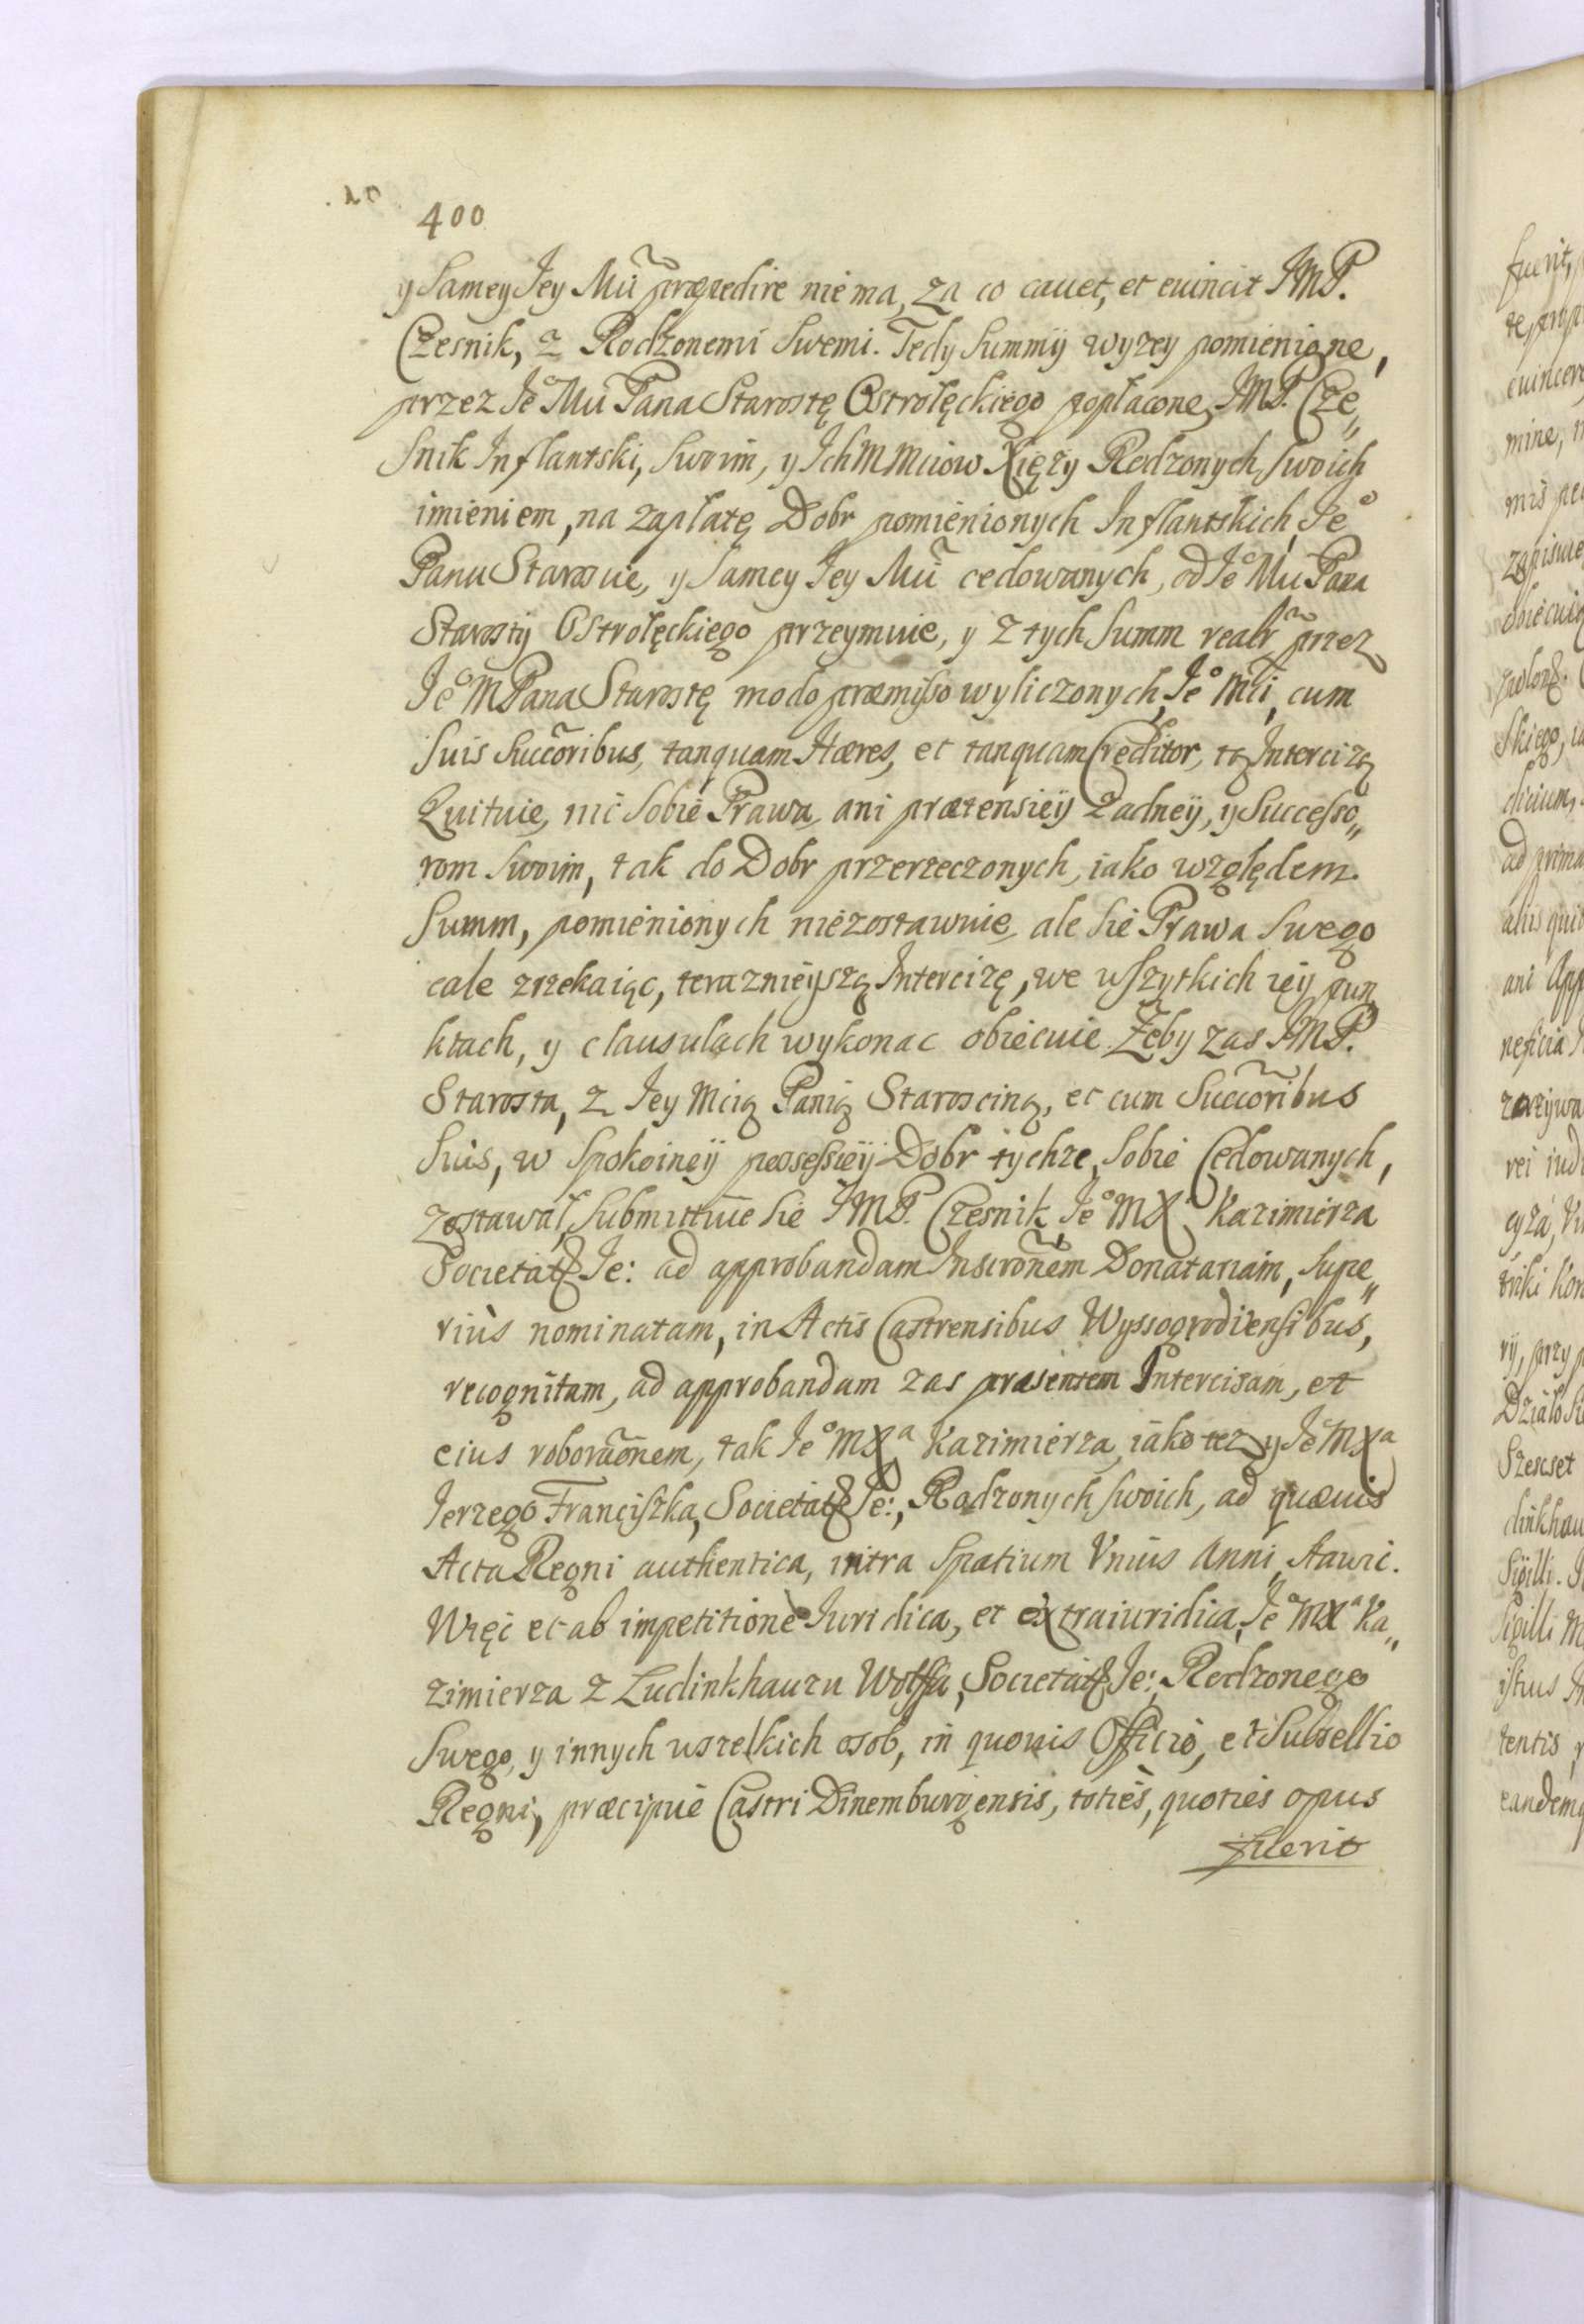 400
y samey Jey Mci præpedire nie ma, za co cavet, et evincit JMP.
Czesnik, z Rodzonemi swemi. Tedy summÿ wyzey pomienione,
przez Je° Mci Pana Starostę Ostrołęckiego popłacone, JMP. Cze„
snik Inflantski, swoim, y Ich M Mciow Xięży Rodzonych, swoich
imieniem, na zapłatę Dobr pomienionych Inflantskich, Je°
Panu Staroscie, y samey Jey Mci cedowanych, od Je° Mci Pana
Starostÿ Ostrołęckiego przeymuie, y z tych summ realr przez
Je° M Pana Starostę modo præmisso wyliczonych, Je° Mci, cum
suis Succoribus, tanquam Hæres, et tanquam Creditor, tą Intercizą
Quituie, nic sobie Prawa, ani prætensieÿ zadneÿ, y Successo„
rom swoim, tak do Dobr przerzeczonych, iako względem
summ, pomienionych niezostawuie, ale sie Prawa swego
cale zrzekaiąc, teraznieÿszą Intercizę, we wszytkich ieÿ pun
ktach, y clausulach wykonac obiecuie. Żeby zas JMP.
Starosta, z Jey Mcią Panią Staroscing, et cum Succoribus
suis, w spokoineÿ possessieÿ Dobr tychze, sobie Cedowanych,
zostawał, submittuie sie JMP. Czesnik, Je° MXa Kazimierza
Societatis Je: ad approbandam Inscronem Donatariam, supe„
riùs nominatam, in Actis Castrensibus Wyssogrodiensibus,
recognitam, ad approbandam zas præsentem Intercisam, et
eius roboraonem, tak Je° MXa Kazimierza, iako tez y Je° MXa
Jerzego Franciszka, Societatis Je:, Rodzonych swoich, ad quævis
Acta Regni authentica, intra spatium Vnius Anni, stawic.
Więc et ab impetitione Iuridica, et extraiuridica, Je° MXa Ka„
zimierza z Ludinkhauzu Wolffa, Societatis Je:, Rodzonego
swego, y innych wszelkich osob, in quovis Officio, et Subsellio
Regni, præcipuè Castri Dinemburgensis, toties, quoties opus
fuerit